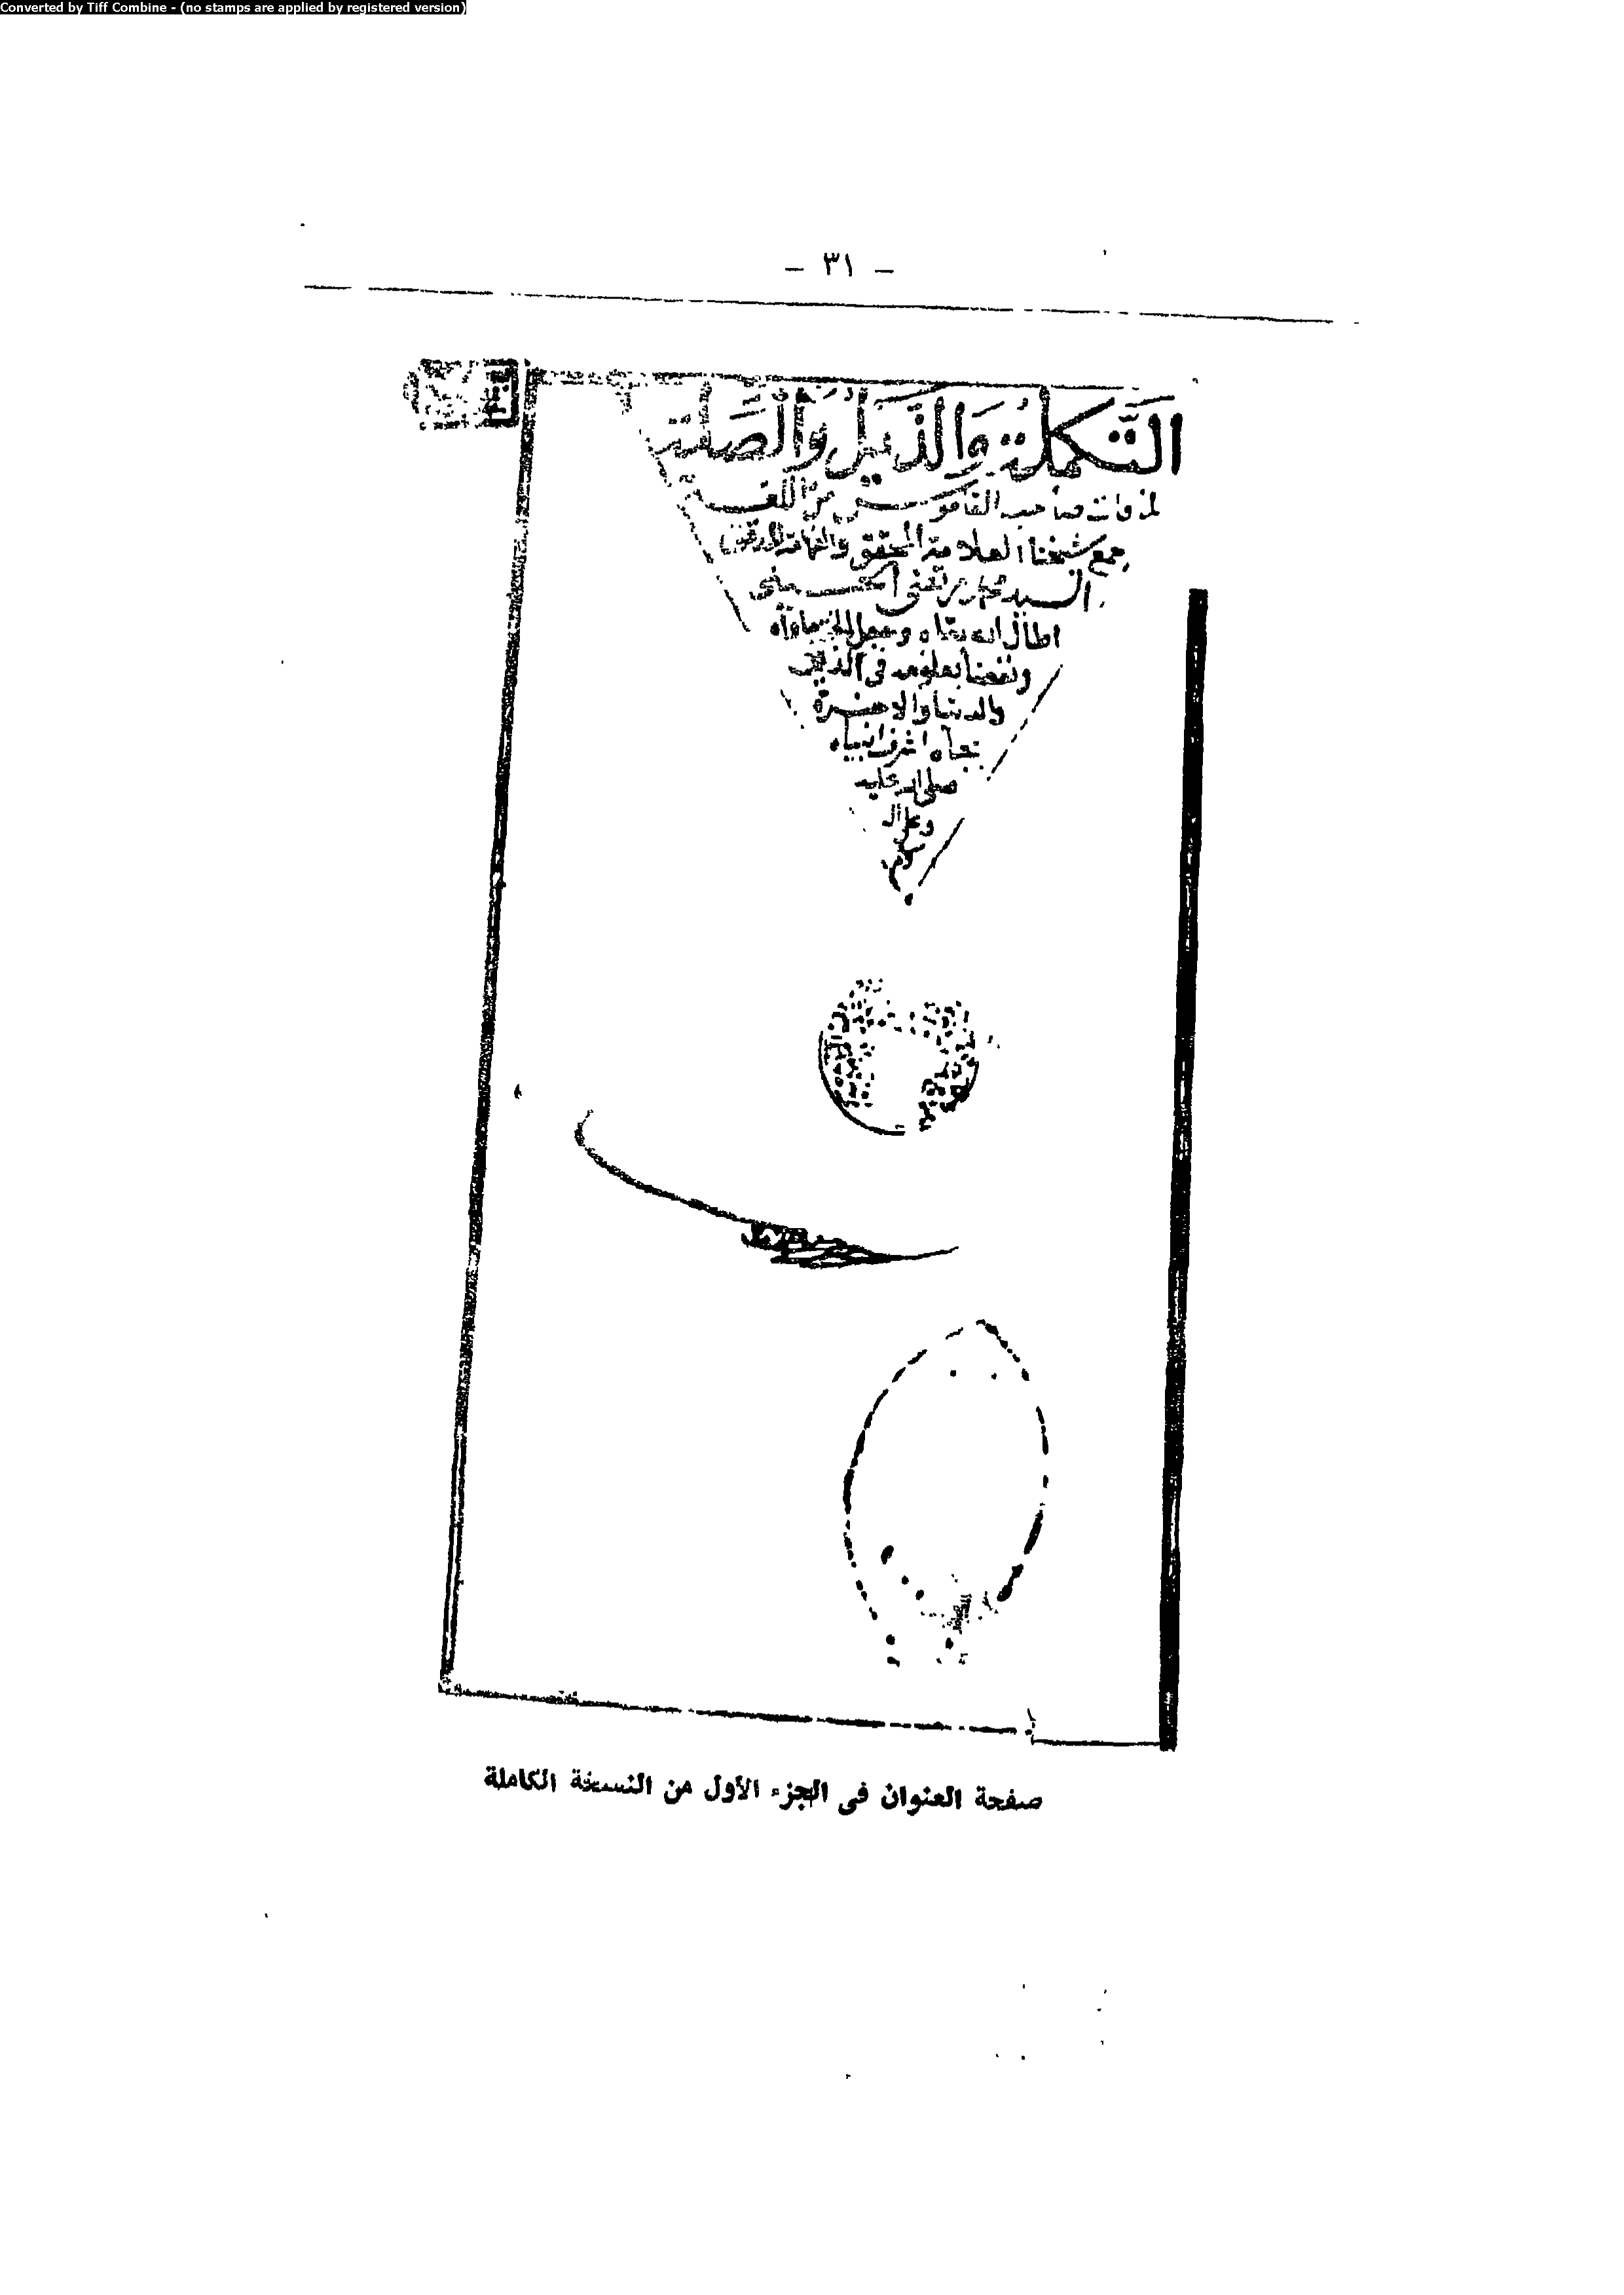 Converted by Tiff Combine - (no stamps are applied by registered version)
- ٣١ -
التَّكمِلَة وَالذَّيل وَالصِّلَة
لما فات صاحب القاموس من اللغة
جمع شيخنا العلامة المحقق والفهامة المدقق
السيد محمد مرتضى الحسيني
اطال الله بقاه
ونفعنا بعلومه فى الدين
والدنيا والاخرة
بجاه اشرف انبياه
صلى الله عليه
وعلى آله
صفحة العنوان فى الجزء الأول من النسخة الكاملة